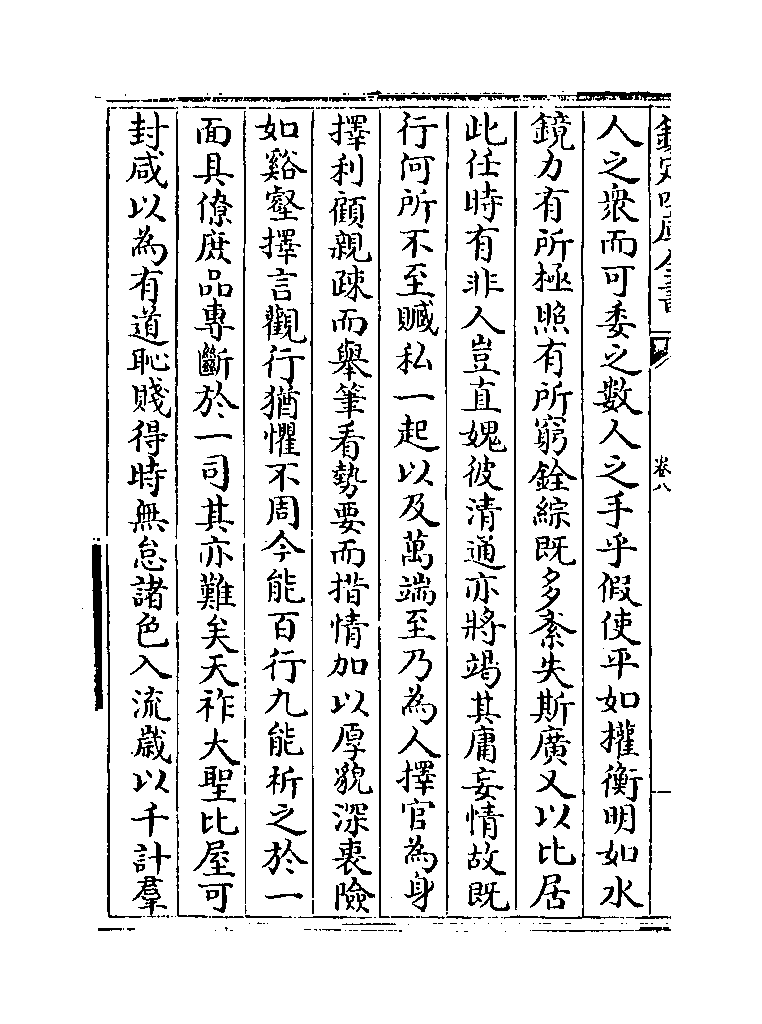 欽定四庫全書
卷八
人之衆而可委之數人之手乎假使平如權衡明如水
鏡力有所極照有所窮銓綜既多紊失斯廣又以比居
此任時有非人豈直媿彼清通亦將竭其庸妄情故既
行何所不至贓私一起以及萬端至乃為人擇官為身
擇利顧親疎而舉筆看勢要而措情加以厚貌深衷險
如谿壑擇言觀行猶懼不周今能百行九能析之於一
面具僚庶品專斷於一司其亦難矣天祚大聖比屋可
封咸以為有道恥賤得時無怠諸色入流歲以千計羣